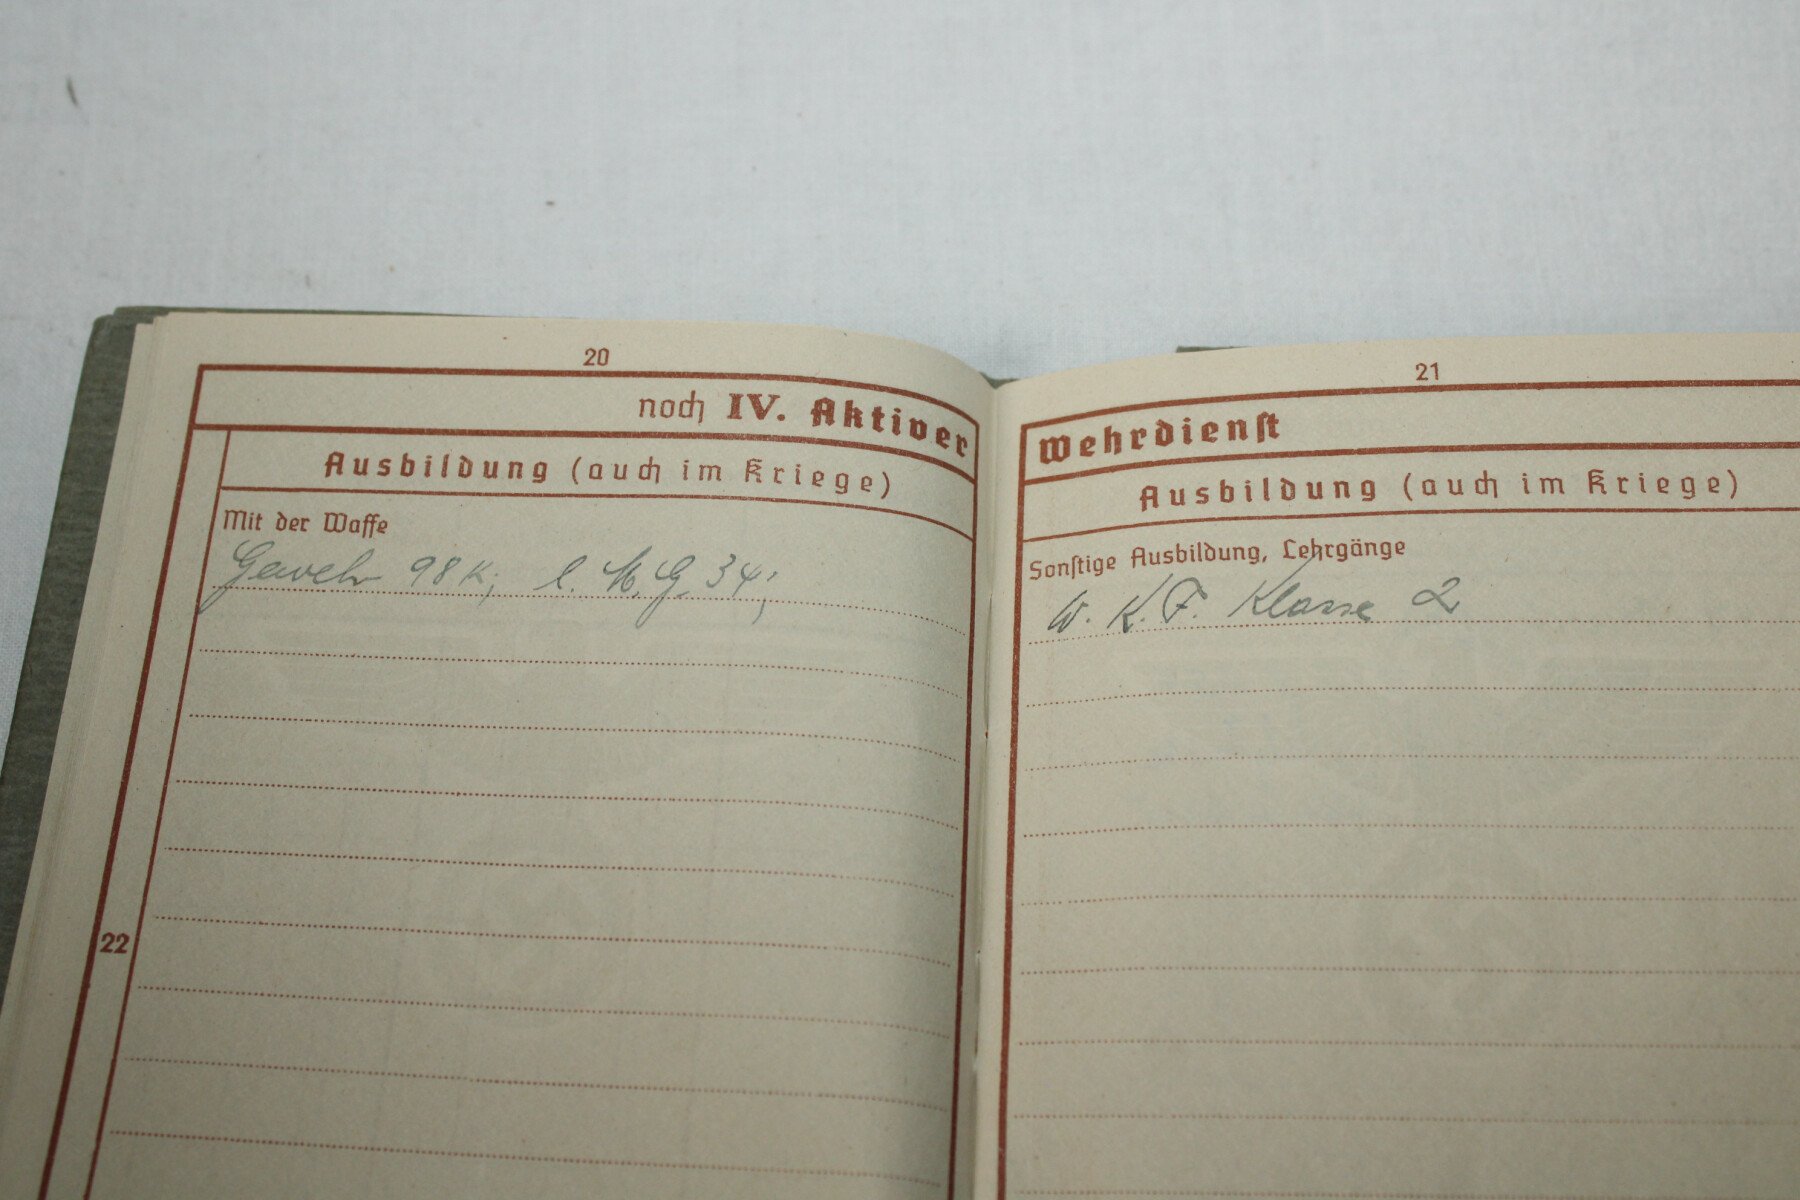 20
noch IV. Aktiver
Ausbildung (auch im Kriege)
Mit der Waffe
Gewehr 98k; l. M.G. 34;
22
21
Wehrdienst
Ausbildung (auch im Kriege)
Sonstige Ausbildung, Lehrgänge
W. K. F. Klasse 2